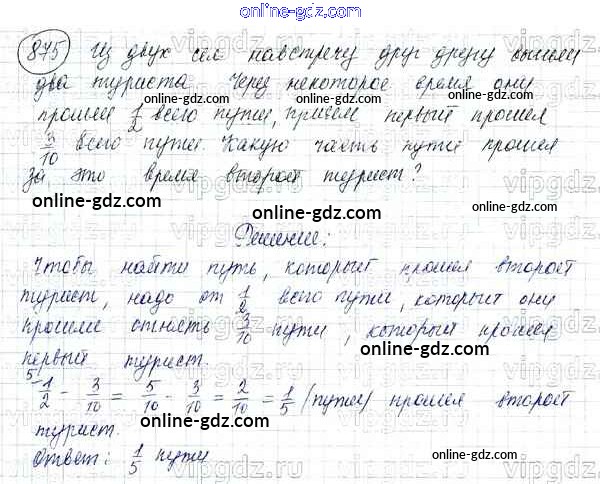 online-gdz.com
875 Из двух сел навстречу друг другу вышли
два туриста. Через некоторое время они
online-gdz.com online-gdz.com
прошли 1/2 всего пути, причем первый прошел
3/10 всего пути. Какую часть пути прошел
online-gdz.com
за это время второй турист?
online-gdz.com online-gdz.com
Решение:
online-gdz.com
Чтобы найти путь, который прошел второй
турист, надо от 1/2 всего пути, который они
online-gdz.com
прошли отнять 3/10 пути, который прошел
online-gdz.com
первый турист.
5\ 1/2 - 3/10 = 5/10 - 3/10 = 2/10 = 1/5 (пути) прошел второй
online-gdz.com online-gdz.com
турист.
Ответ: 1/5 пути
online-gdz.com
vipgdz.com